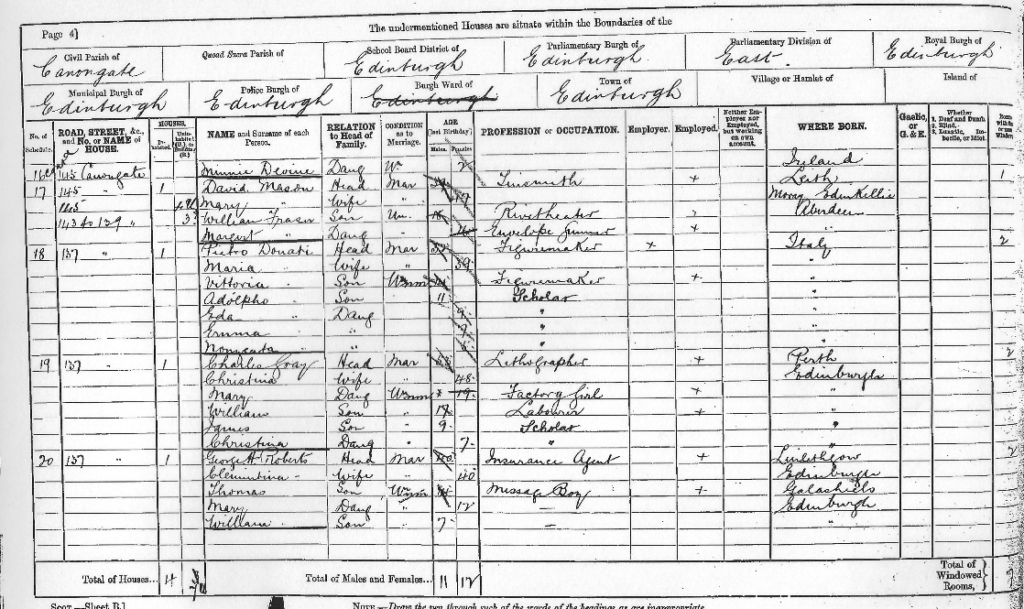 Page 4] The undermentioned Houses are situate within the Boundaries of the
Civil Parish of Quoad Sacra Parish of School Board District of Parliamentary Burgh of Parliamentary Division of Royal Burgh of
Canongate Edinburgh Edinburgh East. Edinburgh
Municipal Burgh of Police Burgh of Burgh Ward of Town of Village or Hamlet of Island of
Edinburgh Edinburgh Edinburgh Edinburgh
No. of Schedule. ROAD, STREET, &c., and No. or NAME of HOUSE. HOUSES. NAME and Surname of each Person. RELATION to Head of Family. CONDITION as to Marriage. AGE [last Birthday]. Males. Females. PROFESSION or OCCUPATION. Employer. Employed. Neither Employer nor Employed, but working on own account. WHERE BORN. Gaelic, or G. & E. Whether 1. Deaf and Dumb. 2. Blind. 3. Lunatic, Imbecile, or Idiot.
16 145 Canongate Minnie Devine Daug 2 Ireland
17 145 " 1 David Mason Head Mar Tinsmith + Leith 1
145 Mary " Wife " Moray Edinkillie
143 to 139 " 3 William Fraser Son Un. Rivetheater Aberdeen
Margert " Daug " Envelope Gummer + "
18 137 " 1 Pietro Donati Head Mar Figuremaker + Italy 2
Maria " Wife " 39 "
Vittoria " Son Unm Figuremaker + "
Adolpho " Son " 11 Scholar "
Eda " Daug " 9 " "
Emma " " " "
" " "
19 137 " 1 Charles Gray Head Mar Lithographer + Perth 2
Christina Wife " 48 Edinburgh
Mary Daug Unm 19 Factory Girl + "
William Son " 17 Labourer + "
James Son " 9 Scholar "
Christina Daug " 7 " "
20 137 " 1 George H. Roberts Head Mar 40 Insurance Agent + Linlithgow 2
Clementina " Wife " 40 Edinburgh
Thomas Son Unm 14 Message Boy + Galashiels
Mary Daug " 12 — Edinburgh
William " Son 7 — "
Total of Houses... 4 Total of Males and Females... 11 12 Total of Windowed Rooms,
Scot—Sheet B.] Note—Draw the pen through such of the words of the headings as are inappropriate.